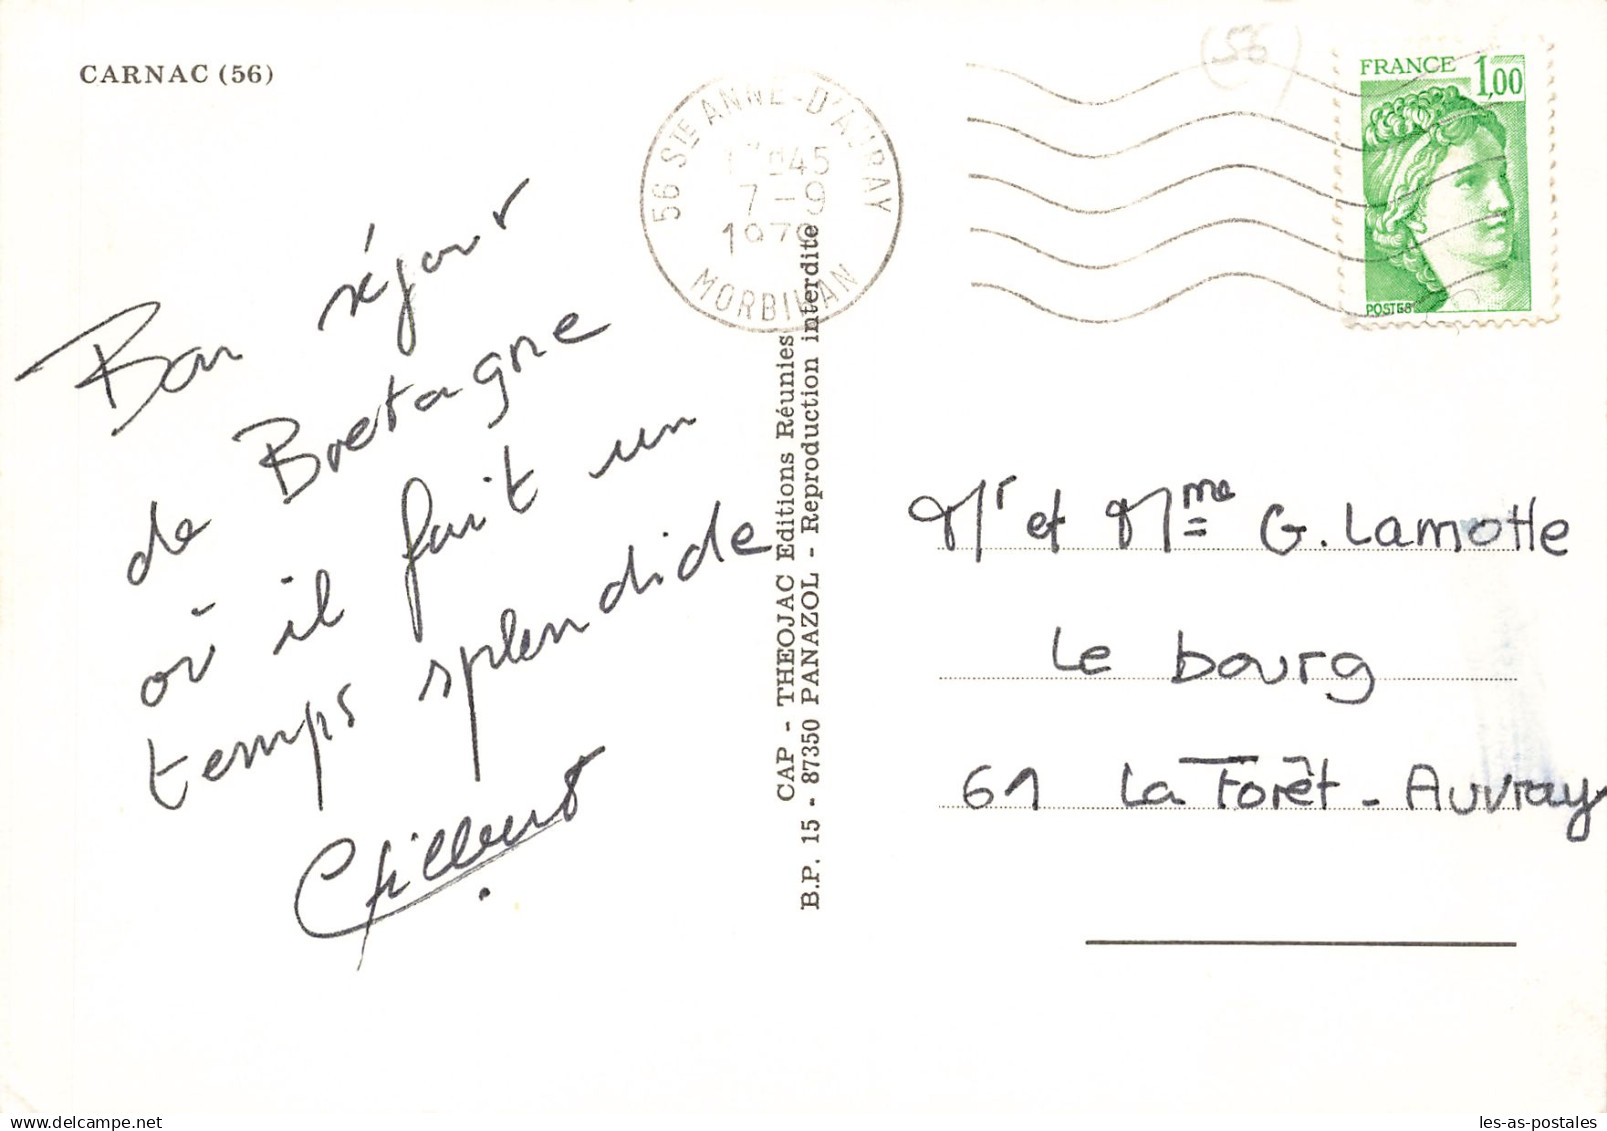 CARNAC (56)
(56)
FRANCE 1,00
POSTES
56 STE ANNE-D'AURAY
45
7-9
MORBIHAN
Bon séjour
de Bretagne
où il fait un
temps splendide
Gilbert
CAP - THEOJAC Editions Réunies
B.P. 15 - 87350 PANAZOL - Reproduction interdite
Mr et Mme G. Lamotte
Le bourg
61 La Forêt - Auvray
delcampe.net
les-as-postales